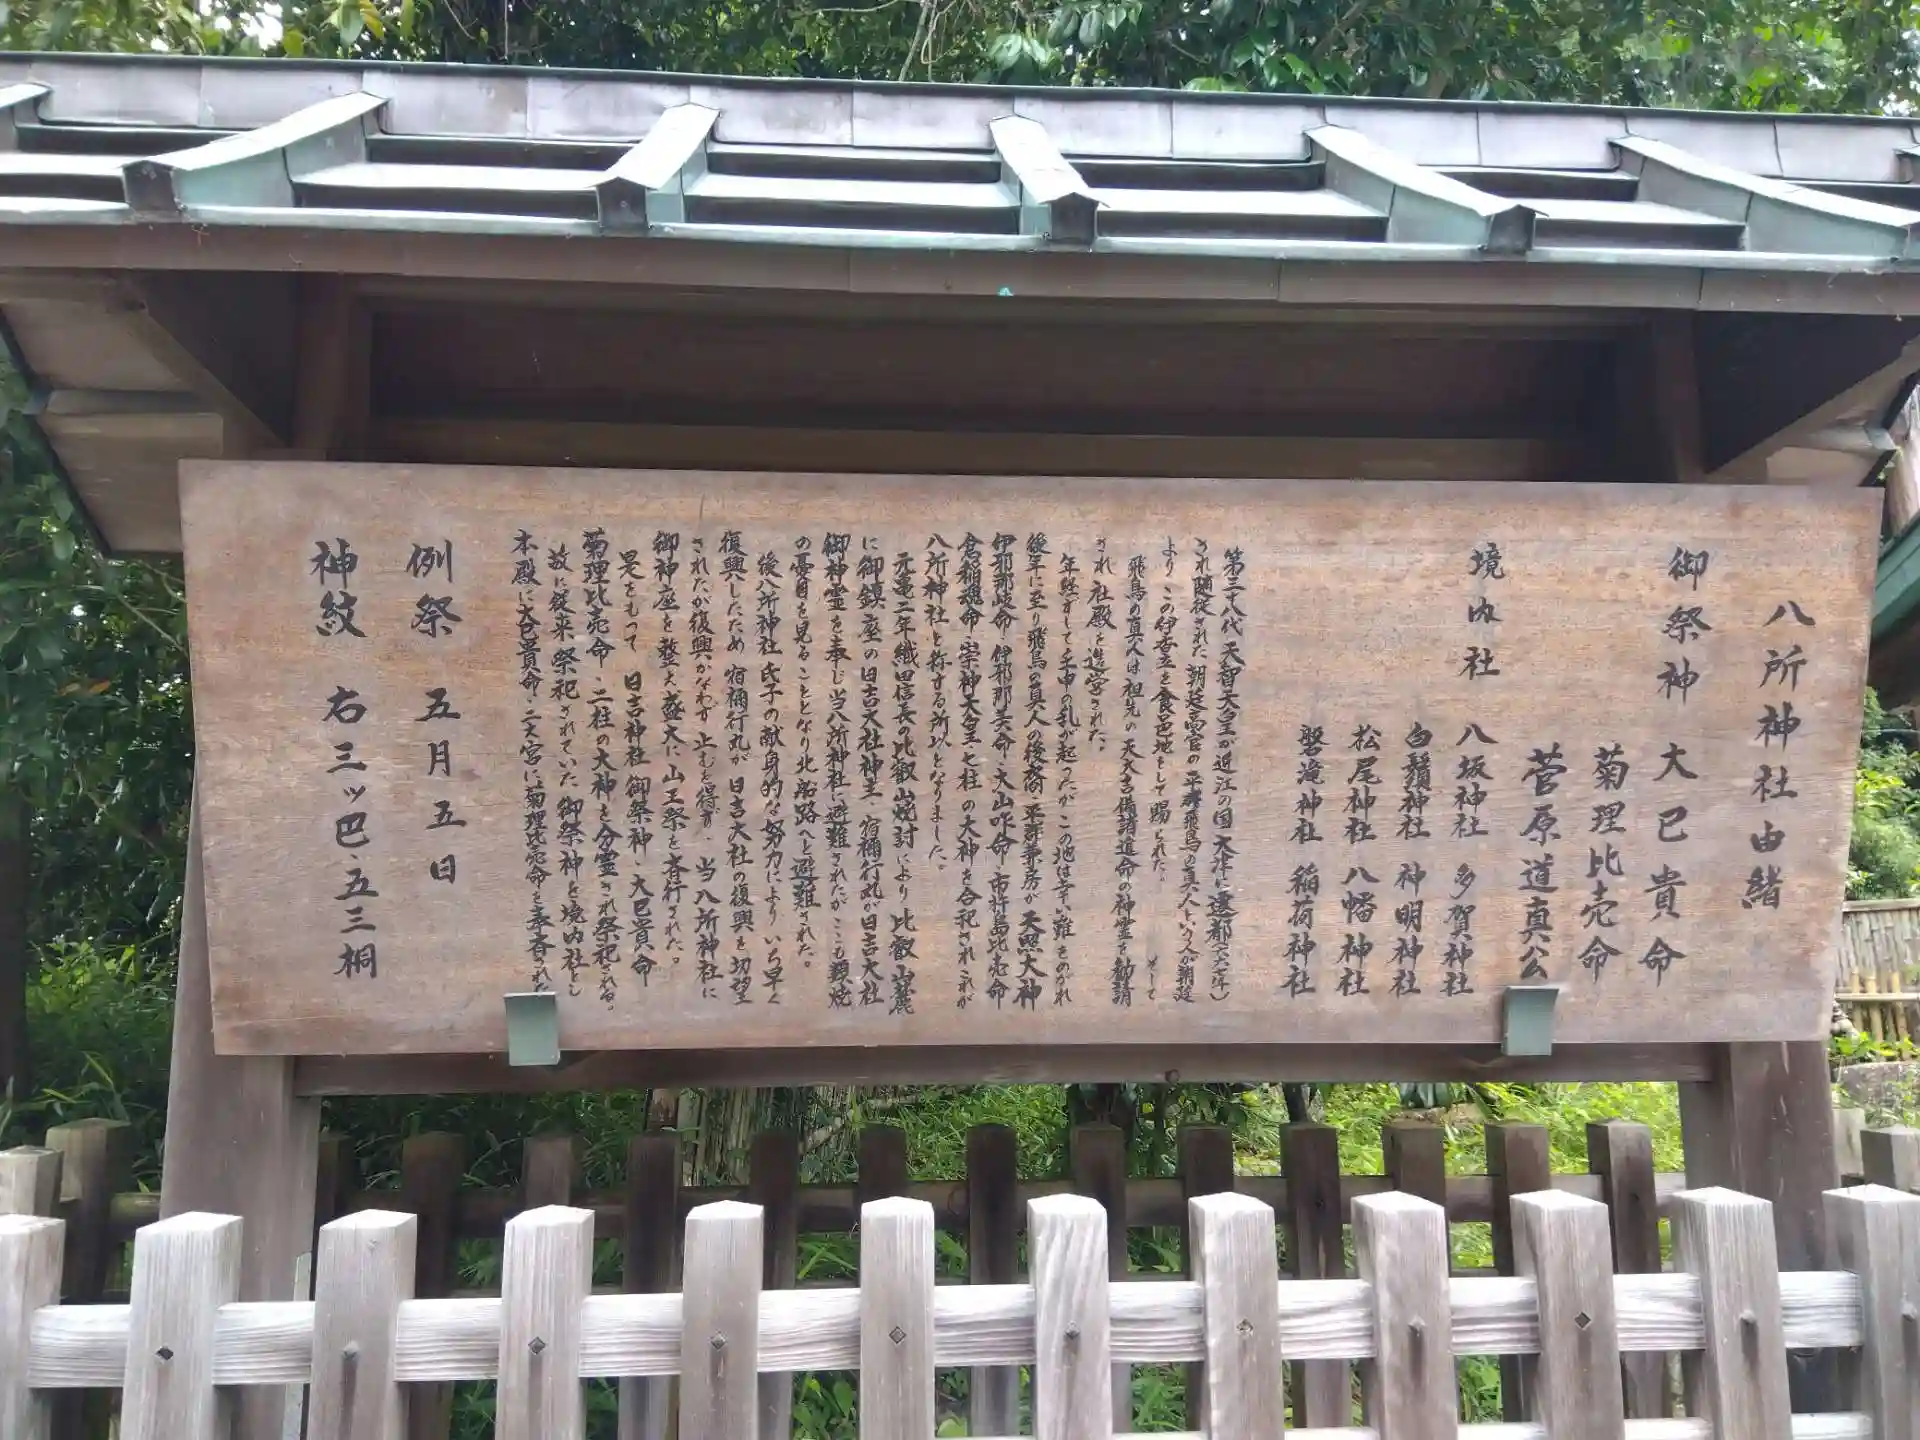 八所神社由緒
御祭神 大己貴命
菊理比売命
菅原道真公
境内社 八坂神社 多賀神社
白鬚神社 神明神社
松尾神社 八幡神社
磐滝神社 稲荷神社
第三十八代天智天皇が近江の国大津に遷都(六六七年)
され随従された朝廷高官の平群飛鳥の真人という人が朝廷
よりこの伊香立を食邑地として賜られた。そして
飛鳥の真人は祖先の天太吉備諸進命の神霊を勧請
され社殿を造営された。
年経ずして壬申の乱が起ったがこの地は幸い難をのがれ
後年に至り飛鳥の真人の後裔・平群兼房が天照大神
伊邪那岐命・伊邪那美命・大山咋命・市杵島比売命
倉稲魂命・崇神天皇・七柱の大神を合祀されこれが
八所神社と称する所以となりました。
元亀二年織田信長の比叡山焼討により比叡山麓
に御鎮座の日吉大社神主・宿禰行丸が日吉大社
御神霊を奉じ当八所神社に避難されたがここも類焼
の憂目を見ることとなり北船路へと避難された。
後八所神社氏子の献身的な努力によりいち早く
復興したため宿禰行丸が日吉大社の復興を切望
されたが復興かなわず止むを得ず、当八所神社に
御神座を整え盛大に山王祭を斉行された。
是をもって日吉神社御祭神・大己貴命
菊理比売命・二柱の大神を分霊され祭祀される。
故に従来祭祀されていた御祭神を境内社とし
本殿に大己貴命・二大宮には菊理比売命を奉斉された
例祭 五月五日
神紋 右三ッ巴・五三桐